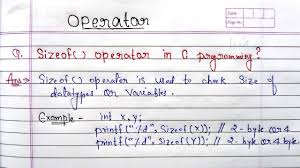 Date
Page No.
Operator
Q. Sizeof() operator in C programming?
Ans → Sizeof() operator is used to check size of
datatypes or variables.
Example - int x, y;
printf("%d", Sizeof(X)); // 2-byte or 4
printf("%d", Sizeof(Y)); // 2-byte or 4 byte